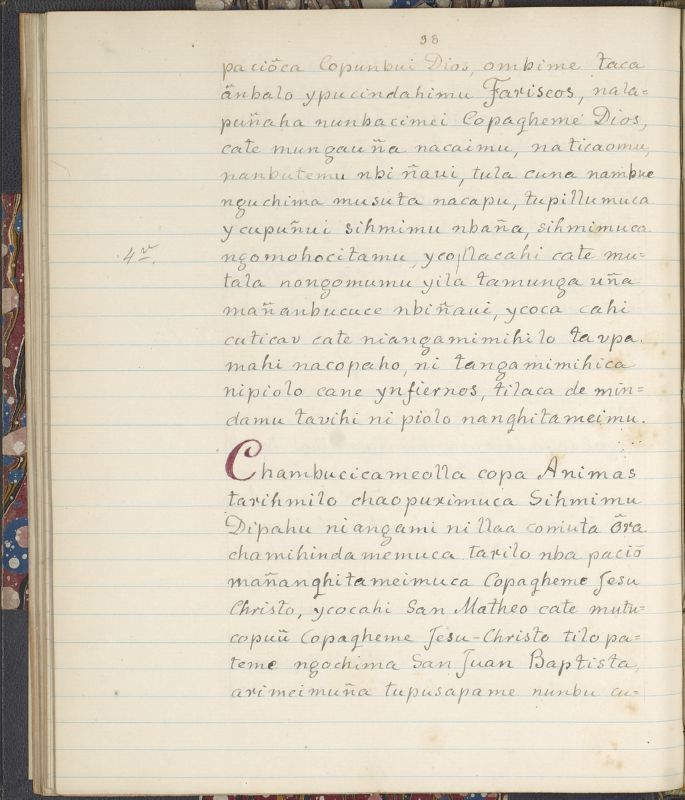 38
paciõca Copunbui Dios, ombime taca
ânbalo ypucindahimu Fariseos, nala=
puñaha nunbacimei Copaqheme Dios,
cate mungauña nacaimu, naticaomu,
nanbutemu nbi ñaui, tula cuna nambue
nguchima musuta nacapu, tupillumuca
y cupuñui sihmimu nbaña, sihmimuca
4r. ngomohocitamu, ycollacahi cate mu=
tala nongomumu yila tamunga uña
mañanbucuce nbiñaui, ycoca cahi
cuticav cate niangamimihilo tavpa.
mahi nacopaho, ni tangamimihica
nipiolo cane ynfiernos, tilaca de min=
damu tavihi ni piolo nanqhitameimu.
Chambucicameolla copa Animas
tarihmilo chaopuximuca Sihmimu
Dipahu niangami nillaa comuta õra
chamihindamemuca tarilo nba paciõ
mañanqhitameimuca Copaqheme Jesu
Christo, ycocahi San Matheo cate mutu=
copuũ Copaqheme Jesu-Christo tilo pa=
teme ngochima San Juan Baptista,
arimeimuña tupusapame nunbu cu=